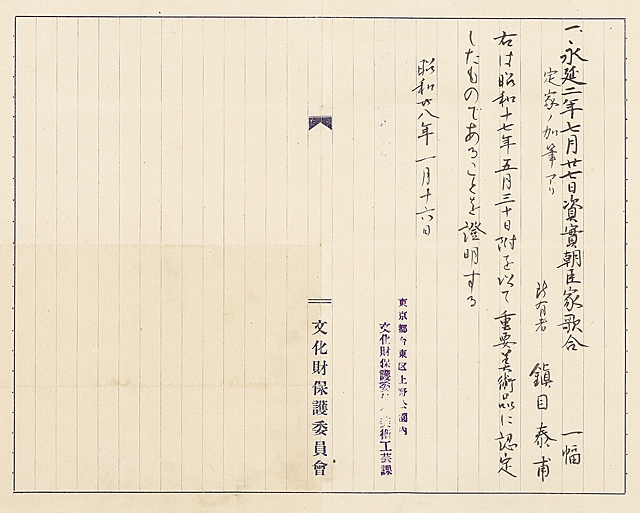 一、永延二年七月廿七日資實朝臣家歌合 一幅
定家ノ加筆アリ
所有者 鎭目泰甫
右は昭和十七年五月三十日附を以て重要美術品に認定
したものであることを證明する
昭和廿八年一月十六日
東京都台東区上野公園内
文化財保護委 美術工芸課
文化財保護委員會